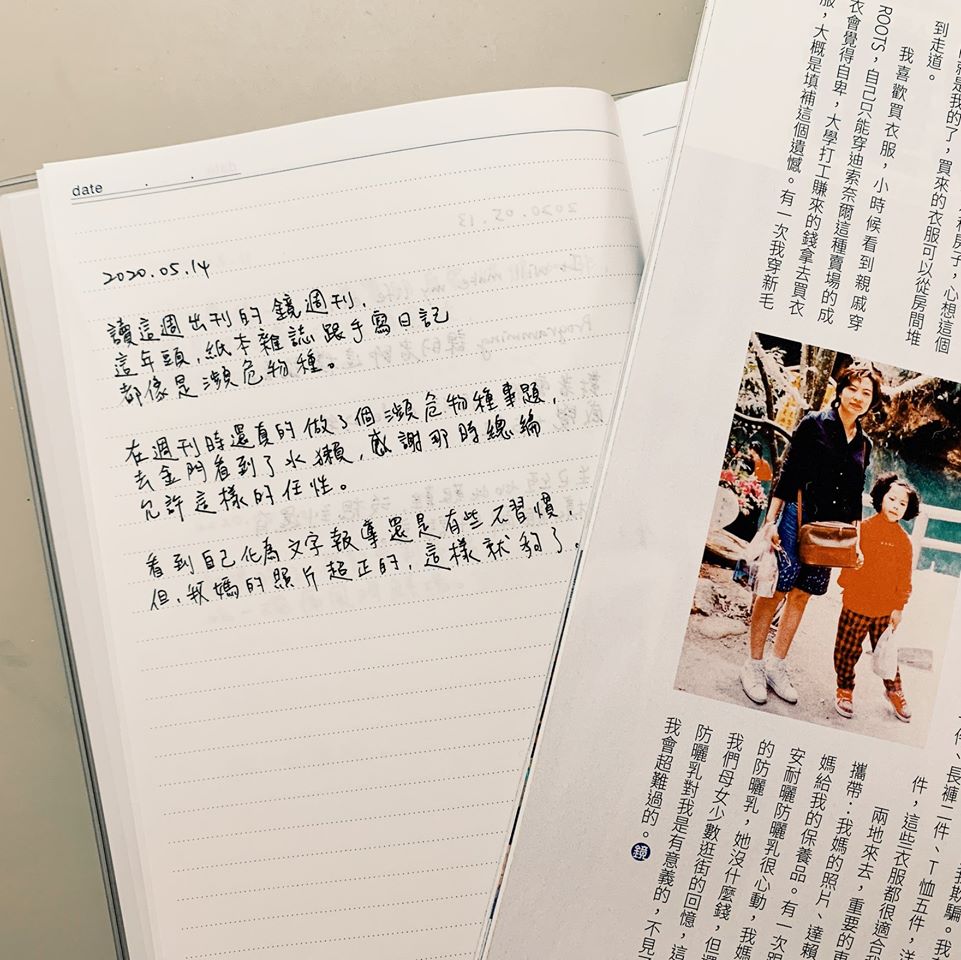 date
2020.05.14
讀這週出刊的鏡週刊,
這年頭,紙本雜誌跟手寫日記
都像是瀕危物種。
在週刊時還真的做了個瀕危物種專題,
去金門看到了水獺,感謝那時總編
允許這樣的任性。
看到自己化為文字報導還是有些不習慣,
但,我媽的照片超正的,這樣就夠了。
房子,心想這個
就是我的了,買來的衣服可以從房間堆
到走道。
我喜歡買衣服,小時候看到親戚穿
ROOTS,自己只能穿迪索奈爾這種賣場的成
衣會覺得自卑,大學打工賺來的錢拿去買衣
服,大概是填補這個遺憾。有一次我穿新毛
欺騙。我
件、長褲二件、T恤五件,洋
件,這些衣服都很適合
兩地來去,重要的
攜帶:我媽的照片、達賴
媽給我的保養品。有一次
安耐曬防曬乳很心動,我媽
的防曬乳,她沒什麼錢,但
我們母女少數逛街的回憶,這
防曬乳對我是有意義的,不見
我會超難過的。鏡